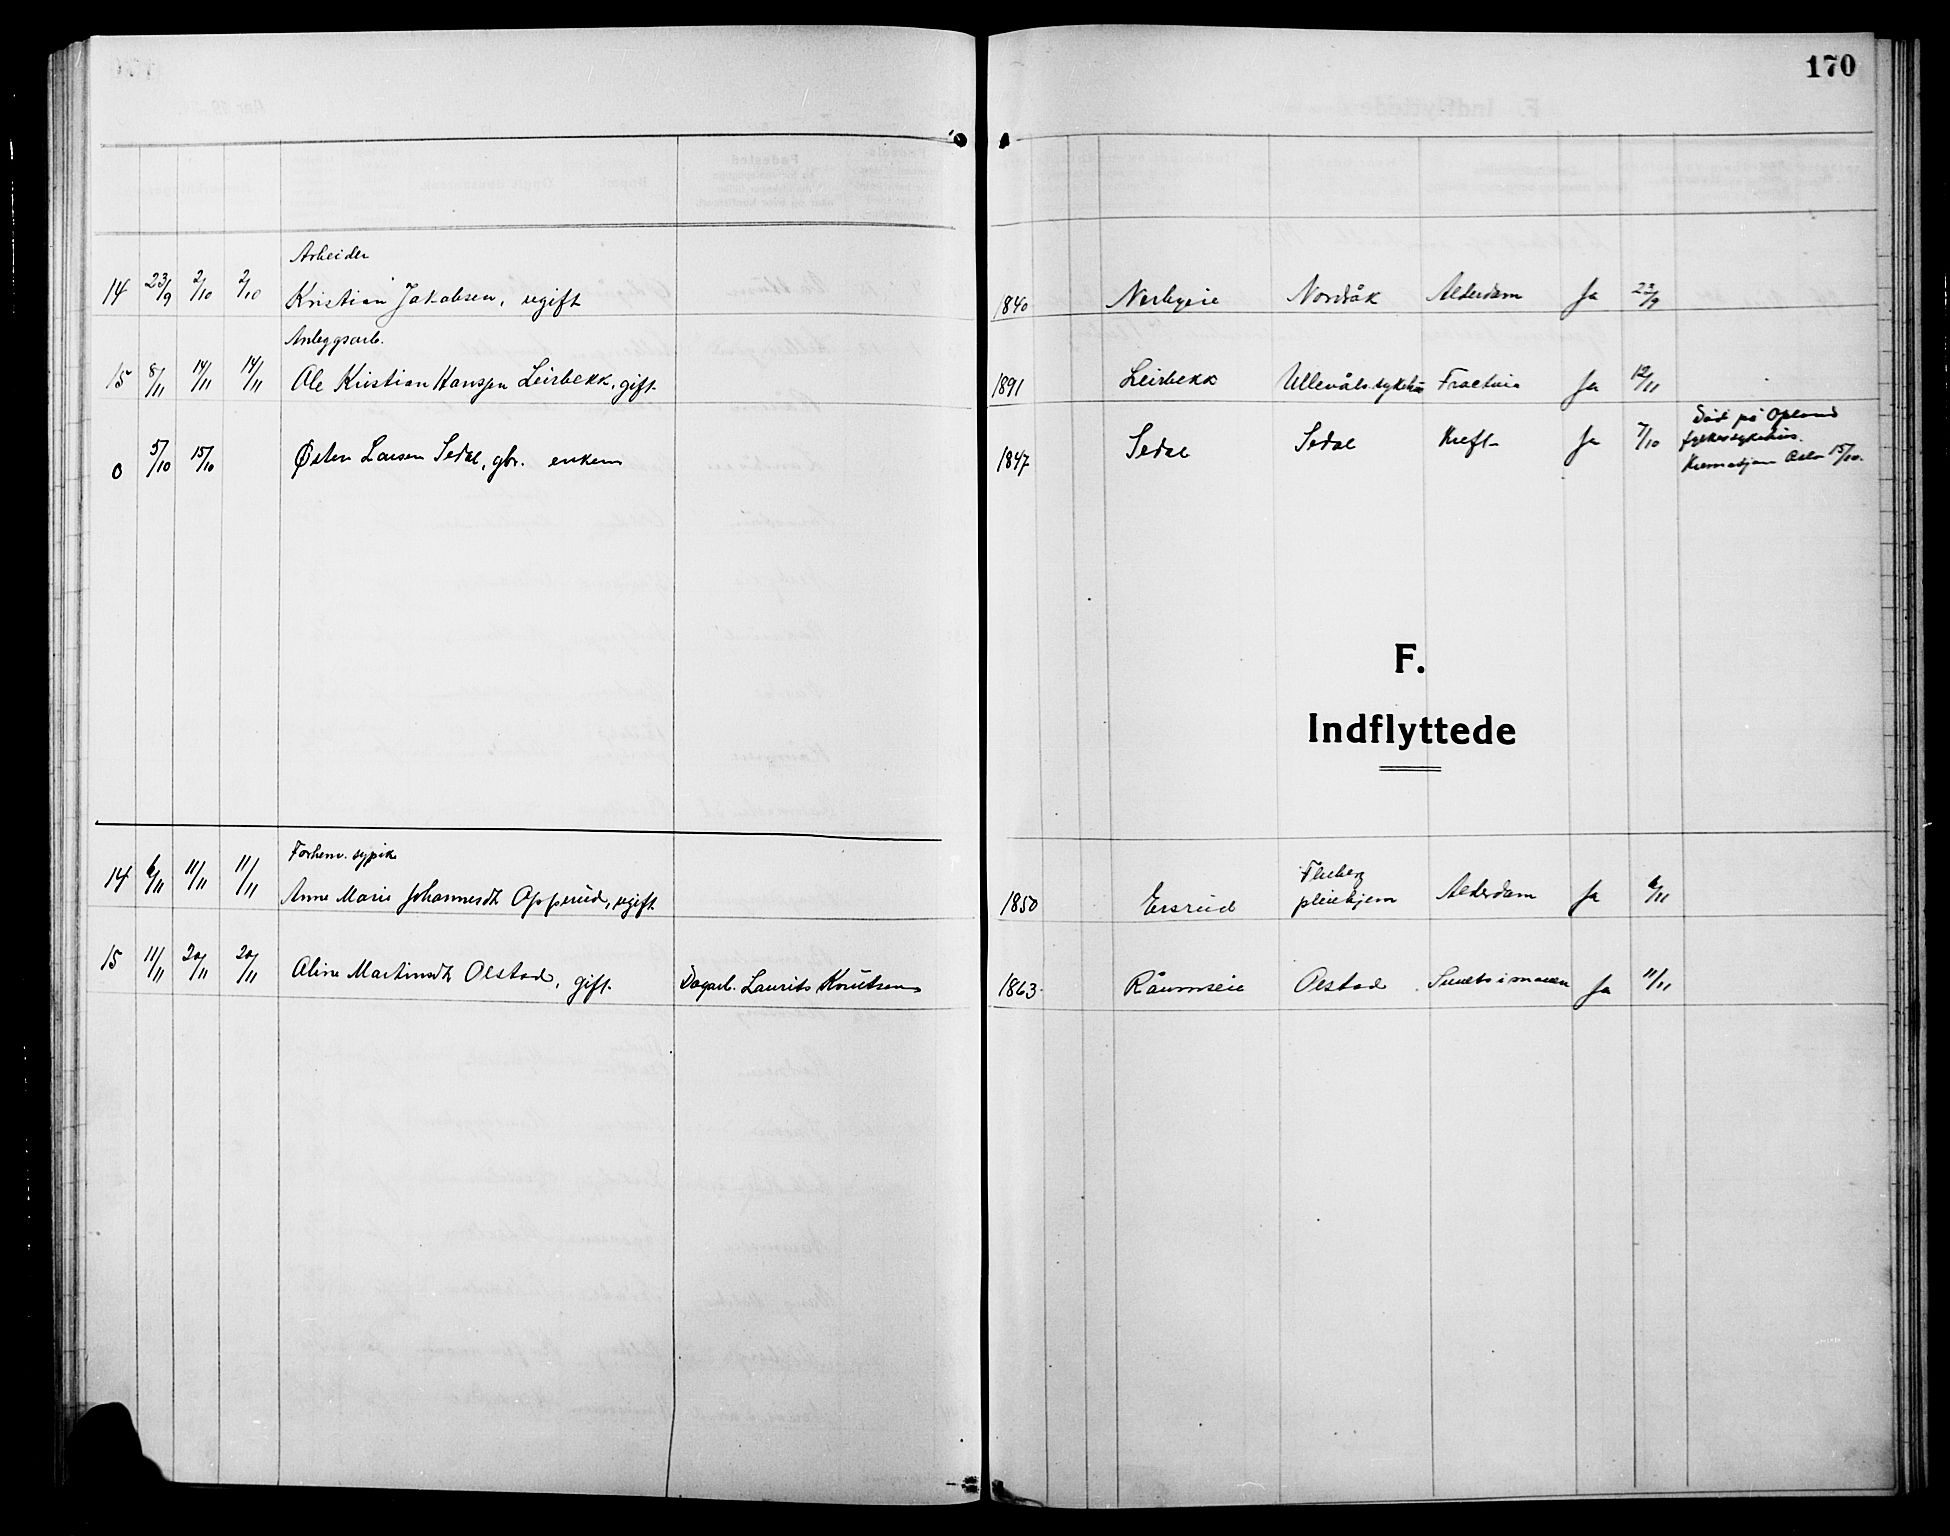 170
Arbeider
14 23/9 2/10 2/10 Kristian Jakobsen, ugift 1840 Nerbyeie Nordråk Alderdom Ja 23/9
Anleggsarb.
15 8/11 14/11 14/11 Ole Kristian Hansen Leirbekk, gift 1891 Leirbekk Ullevål sykehus Fractura Ja 12/11
0 5/10 15/10 Østen Larsen Sedal, gbr. enkem 1847 Sedal Sedal Kreft Ja 7/10 Død på Opland
fylkessykehus.
Kremasjon Oslo 15/10.
F.
Indflyttede
Forhenv. sypik
14 6/11 11/11 11/11 Anne Marie Johannesdt Opperud, ugift 1850 Ersrud Fluberg
pleiehjem Alderdom Ja 6/11
15 11/11 20/11 20/11 Oline Martinsdt Olstad, gift. Dagarb. Laurits Knutsen 1863 Råumseie Olstad i maven Ja 11/11